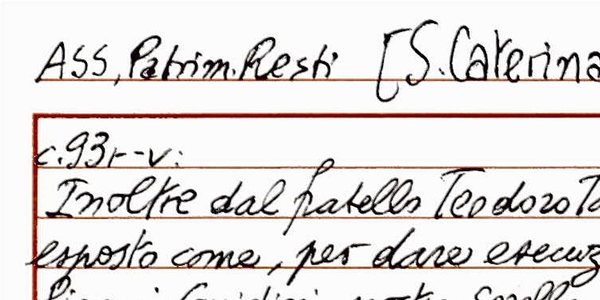 ASS, Patrim. Resti [S. Caterina
c. 93r-v:
Inoltre dal fratello Teodoro Ta
esposto come, per dare esecuz